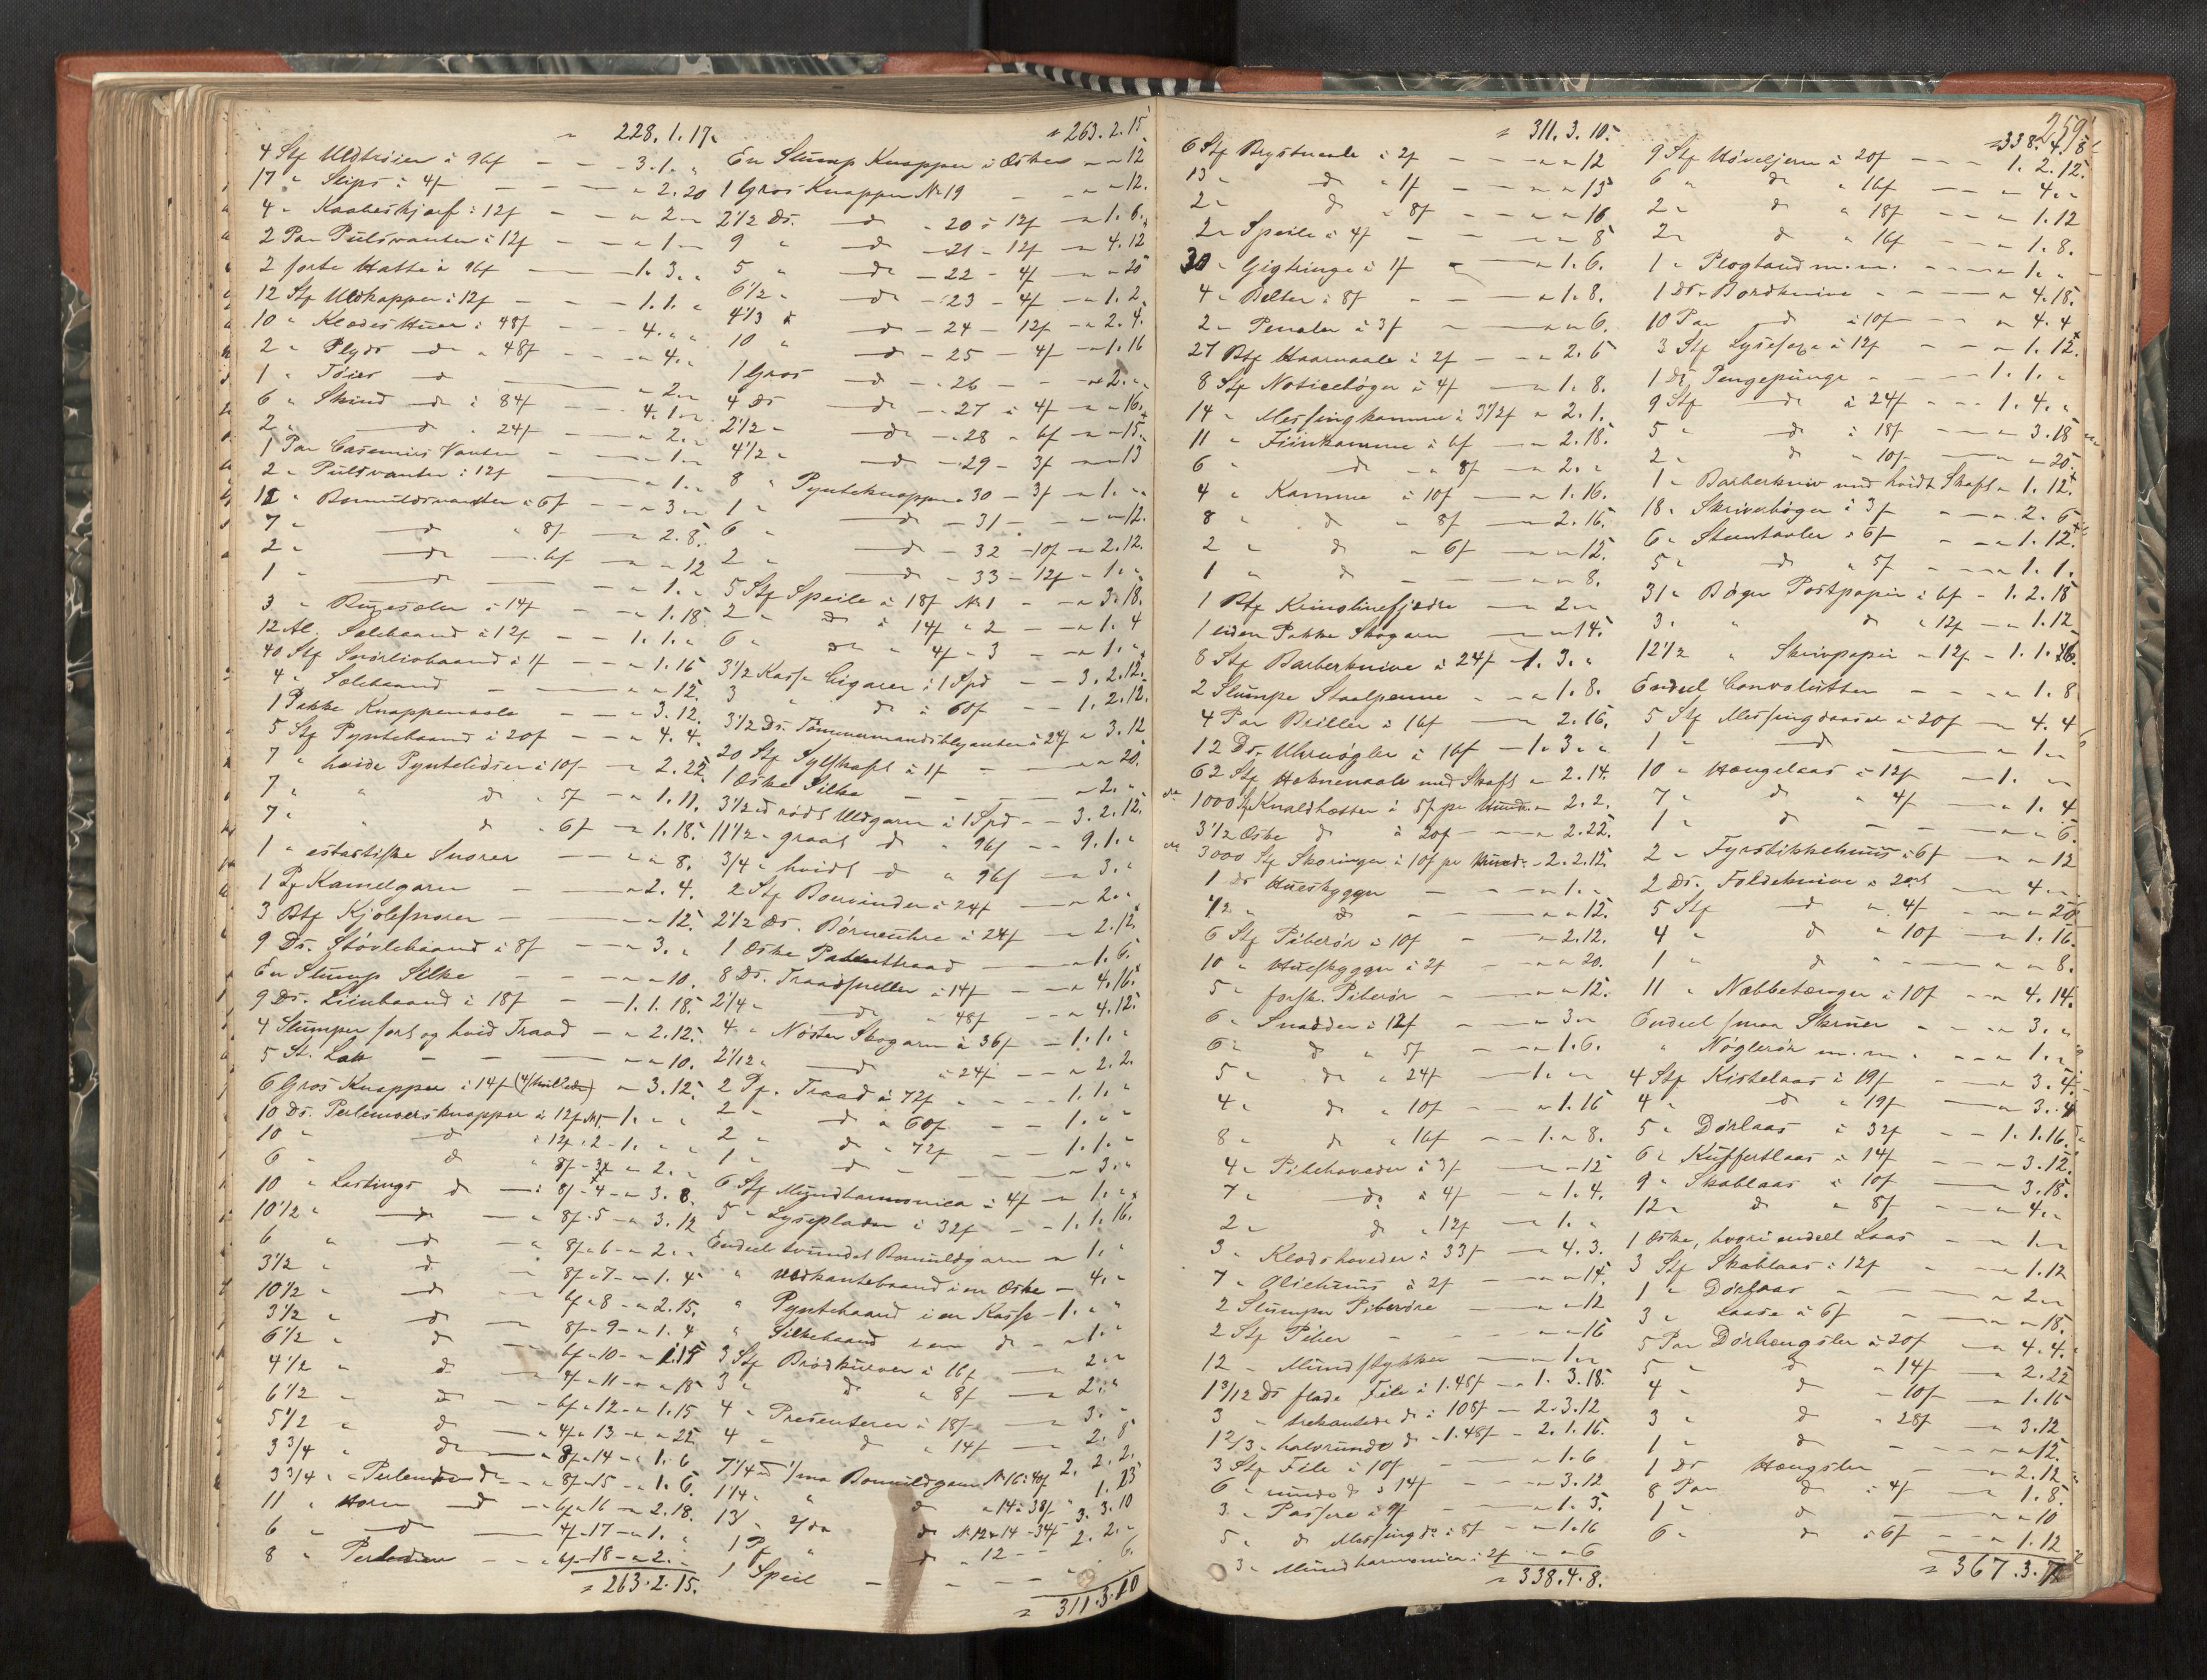 228.1.17.
4 Stk Uldtrøier à 96f - - 3.1. "
17 " Slips à 4f - - " 2.20
4 " Kaabeskjærf à 12f - - " 2 "
2 Par Pulsvanter à 12f - - " 1 "
2 sorte Hatte à 96f - 1.3. "
12 Stk Uldkapper à 12f - - 1.1. "
10 " Klædes Huer à 48f - - 4. " "
2 " Plyds do " 48f - - " 4. "
1 " Tøies do - " 2 "
6 " Skind do à 84f - - 4.1 "
2 " do " 24f - " 2. "
1 Par Casemirs Vanter - " 1 "
2 " Pulsvanter à 12f - " 1. "
12 " Bomuldsvanter à 6f - - " 3 "
7 " do " 8f - " 2.8.
2 " do - 6f - " " 12
1 " do - " 1. "
3 " Rugesaler à 14f - - " 1.18.
12 Al. Salebaand à 12f - - 1.1. "
40 Stk Snørlivbaand à 1f - - " 1.16
4 " Salebaand - " " 12.
1 Pakke Knappenaale - - " 3.12.
5 Stk Pyntebaand à 20f - - " 4.4.
7 " hvide Pyntelidser à 10f - " 2.22.
7 " " do " 5f - " 1.11.
7 " " do " 6f - " 1.18.
1 " elastiske Snorer - " " 8.
1 Pk Kamelgarn - " 2.4.
3 Btk Kjolesnorer - " " 12.
9 Ds. Støvlebaand à 8f - - " 3. "
En Slump Silke - - " " 10.
9 Ds. Liinbaand à 18f - - 1.1.18.
4 Slumper sort og hvid Traad - " 2.12.
5 St. Lak - - " " 10.
6 Gros Knapper à 14f - " 3.12.
10 Ds. Perlemoersknapper à 12f No 1 - 1. " "
10 " do " 12f " 2 - 1. " "
6 " do " 8f - 3 - " 2. "
10 " Lastings do - " 8f - 4 - " 3.8.
10 1/2 " do - " 8f - 5 - " 3.12
6 " do - " 8f " 6 - " 2. "
3 1/2 " do " 8f " 7 - " 1.4
10 1/2 " do - 6f " 8 - " 2.15.
3 1/2 " do - 8f - 9 - " 1.4
6 1/2 " do - 6f " 10 - " 1.15
4 1/2 " do - 4f " 11 - " " 18
6 1/2 " do - 6f " 12 - " 1.15
5 1/2 " do - 4f " 13 - " " 22
3 3/4 " do - " 8f " 14 - " 1.6
3 3/4 " " Perlemoers do - " 8f " 15 - " 1.6.
11 " Horn do - " 6f " 16 - " 2.18.
6 " do - 4f - 17 - " 1. "
8 " - - 6f - 18 - " 2. "
= 263.2.15.
= 263.2.15
En Slump Knapper i Æsker - " " 12
1 Gros Knapper No 19 - " " 12.
2 1/2 Ds. do - " 20 à 12f - " 1.6.
9 " do - 21 - 12f - " 4.12
5 " do - 22 - 4f - " " 20
6 1/2 " do - 23 - 4f - " 1.2.
4 1/3 " do - 24 - 12f - " 2.4.
10 " do - 25 - 4f - " 1.16
1 Gros do - " 26 - - " 2. "
4 Ds do - " 27 à 4f - " " 16.
2 1/2 " do - " 28 " 6f - " " 15.
4 1/2 " do - " 29 - 3f - " " 13
8 " Pynteknapper " 30 - 3f - " 1. "
1 " do - 31 - - " " 12.
6 " do - 32 - 10f - " 2.12.
2 " do - 33 - 12f - " 1. "
5 Stk Speile à 18f No 1 - - " 3.18.
2 " do à 14f " 2 - - " 1.4
6 " do " 4f " 3 - - " 1. "
3 1/2 Kasse Cigarer à 1 Spd - - 3.2.12.
3 " do à 60f - - 1.2.12.
3 1/2 Ds. Tømmermandsblyanter à 24f " 3.12
20 Stk Sylskaft à 1f - " " 20.
1 Æske Silke - - " 2. "
3 1/2 rødt Uldgarn à 1 Spd - - 3.2.12.
11 1/2 " graat do " 96f - - 9.1. "
3/4 " hvidt do " 96f - " 3. "
2 Stk Borvinder à 24f - " 2. "
2 1/2 Ds. Børneuhre à 24f - " 2.12
1 Æske Patenttraad - " 1.6.
8 Ds. Traadsneller à 14f - - " 4.16.
2 1/4 " do " 48f - - " 4.12.
4 " Nøster Skogarn à 36f - - 1.1. "
2 1/12 " do à 24f - - " 2.2.
2 Pk. Traad à 72f - - - 1.1. "
2 " do à 60f - - 1. " "
2 " do " 72f - - 1.1. "
1 " do - - " 3. "
6 Stk Mundharmonica à 4f - " 1. "
5 " Lyseplader à 32f - - 1.1.16.
Endeel tvundet Bomuldsgarn - " 1. "
" Uldkantebaand i en Æske - 4. "
" Pyntebaand i en Kasse - 1. " "
" Silkebaand i en do - " 1. "
3 Stk Brødkurver à 16f - 2. "
3 " do " 8f - " 2. "
4 " Presenterer à 18f - " 3. "
4 " do " 14f - " 2.8
7 1/4 Bomuldsgarn No 16 à 40f 2.2.2.
1 1/4 " " do " 14 à 38f " 1.23
13 " do No 12 à 14 - 34f - 3.3.10
1 P " do " 12 - - 2.2. "
1 Speil - - - - - 6.
= 311.3.10
= 311.3.10.
6 Stk Brystnaale à 2f - - " " 12
13 " do " 1f - - " " 13
2 " do " 8f - - " " 16
2 " Speile à 4f - - " " 8
30 " Gigtringe à 1f - " 1.6.
4 " Belter à 8f - - " 1.8.
2 " Penaler à 3f - - " " 6.
27 Btk Haarnaale à 2f - - " 2.6
8 Stk Noticebøger à 4f - " 1.8.
14 " Messingkamme à 3 1/2f " 2.1.
11 " Fiinkamme à 6f - " 2.18.
6 " do " 8f - " 2. "
4 " Kamme à 10f - " 1.16.
8 " do " 8f - " 2.16.
2 " do " 6f - " " 12.
1 " do - - " " 8.
1 Btk Krinolinefjædre - " 2 "
1 liden Pakke Skogarn - " " 14.
8 Stk Barberknive à 24f - 1.3. "
2 Slumpe Staalpenne - - " 1.8.
4 Par Briller à 16f - " 2.16.
12 Ds. Uhrnøgler à 16f - 1.3. "
62 Stk Hakenaale med Skaft " 2.14.
1000 Stk Knaldhætter à 5f pr Hund. " 2.2.
3 1/2 Æske do à 20f - - " 2.22.
3000 Stk Skoringer à 10f pr Hund. - 2.2.12.
1 Ds Hueskygger - - " 1. "
1/2 " do - - " " 12.
6 Stk Piberør à 10f - - " 2.12.
10 " Hueskygger à 2f - " " 20.
5 " forsk. Piberør - " " 12.
6 " Snadder à 12f - - " 3 "
6 " do " 5f - - " 1.6.
5 " do " 24f - 1. " "
4 " do " 10f - " 1.16
8 " do " 16f - - 1. " 8.
4 " Pibehoveder à 3f - " " 12
7 " do à 4f - " 1.4.
2 " do " 12f - " 1. "
3 " Klodshoveder à 33f - " 4.3.
7 " Oliehuus à 2f - " " 14.
2 Slumper Piberøre - " " 12
2 Stk Piber - - " " 16
12 " Mundstykker - " 1 "
1 9/12 Ds flade File à 1.48f - " 1.3.18.
3 " trekantede do à 108f - 2.3.12
1 2/3 " halvrunde do " 1.48f - 2.1.16.
3 Stk File à 10f - " 1.6
6 " runde do à 14f - " 3.12
3 " Passere à 9f - " 1.3.
5 " do Messing do à 8f - " 1.16
3 " Mundharmonica à 2f - " " 6
= 338.4.8.
259
= 338.4.8
9 Stk Høveljern à 20f - - 1.2.12.
6 " do " 16f - - " 4. "
2 " do " 18f - - " 1.12
2 " do " 16f - - " 1.8.
1 " Plogtand m.m. - - " 1. "
1 Ds. Bordknive - - " 4.18.
10 Par do à 10f - " 4.4
3 Stk Lysesaxe à 12f - - " 1.12.
1 Ds Pengepunge - - 1.1. "
9 Stk do à 24f - - 1.4. "
5 " do à 18f - " 3.18
2 " do " 10f - " " 20.
1 " Barberkniv med hvidt Skaft " 1.12.
18 " Skrivebøger à 3f - - " 2.6
6 " Steentavler à 6f - - " 1.12.
5 " do " 5f - - " 1.1.
31 " Bøger Postpapir à 6f - 1.2.18
3 " " do " 12f - " 1.12
12 1/2 " Skrivpapir " 12f - 1.1.6.
Endeel Convolutter - - - " 1.8
5 Stk Messingdaaser à 20f - " 4.4
1 " do - " 1 "
10 " Hængelaas à 12f - 1. " "
7 " do " 4f - " 1.4
1 " do - - " " 6.
2 " Fyrstikkehuus à 6f - " " 12
2 Ds. Foldeknive à 2 ort - " 4 "
5 Stk do " 4f - " " 20
4 " do " 10f - " 1.16.
1 " do " - " " 8.
11 " Næbbetænger à 10f - " 4.14.
Endeel smaa Skruer - - - " 3. "
" Nøglerør m.m. - - " 1. "
4 Stk Kistelaas à 19f - " 3.4.
4 " do " 19f - " 3.4
5 " Dørlaas à 32f - - 1.1.16.
6 " Kuffertlaas à 14f - - " 3.12.
9 " Skablaas à 10f - 3.18.
12 " do " 8f - " 4. "
1 Æske, hvori endeel Laas - - " 1 "
3 Stk Skablaas à 12f - - " 1.12
1 " Dørlaas - - " 2 "
3 " Laase à 6f - " " 18.
5 Par Dørhængsler à 20f - " 4.4.
5 " do " 14f - " 2.22
4 " do " 10f - " 1.16
3 " do " 28f - " 3.12
1 " do - - " " 12.
1 Ds Hængsler - - " 2.12
8 Par do à 4f - " 1.8.
1 " do - " " 10
6 " do à 6f - - " 1.12
= 367.3.